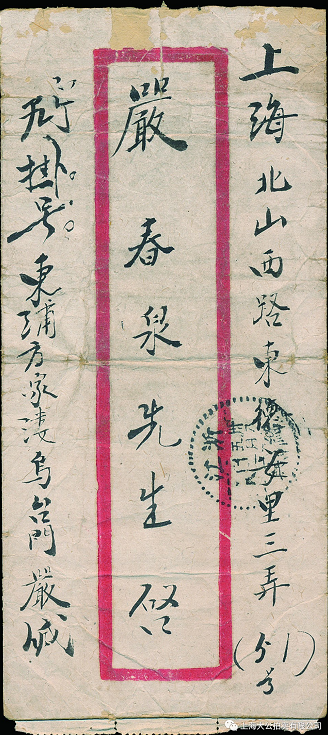 上海北山西路東德安里三弄(分1)号
嚴春泉先生啓
掛号。東浦方家溇烏台門嚴緘
上海大公拍卖有限公司